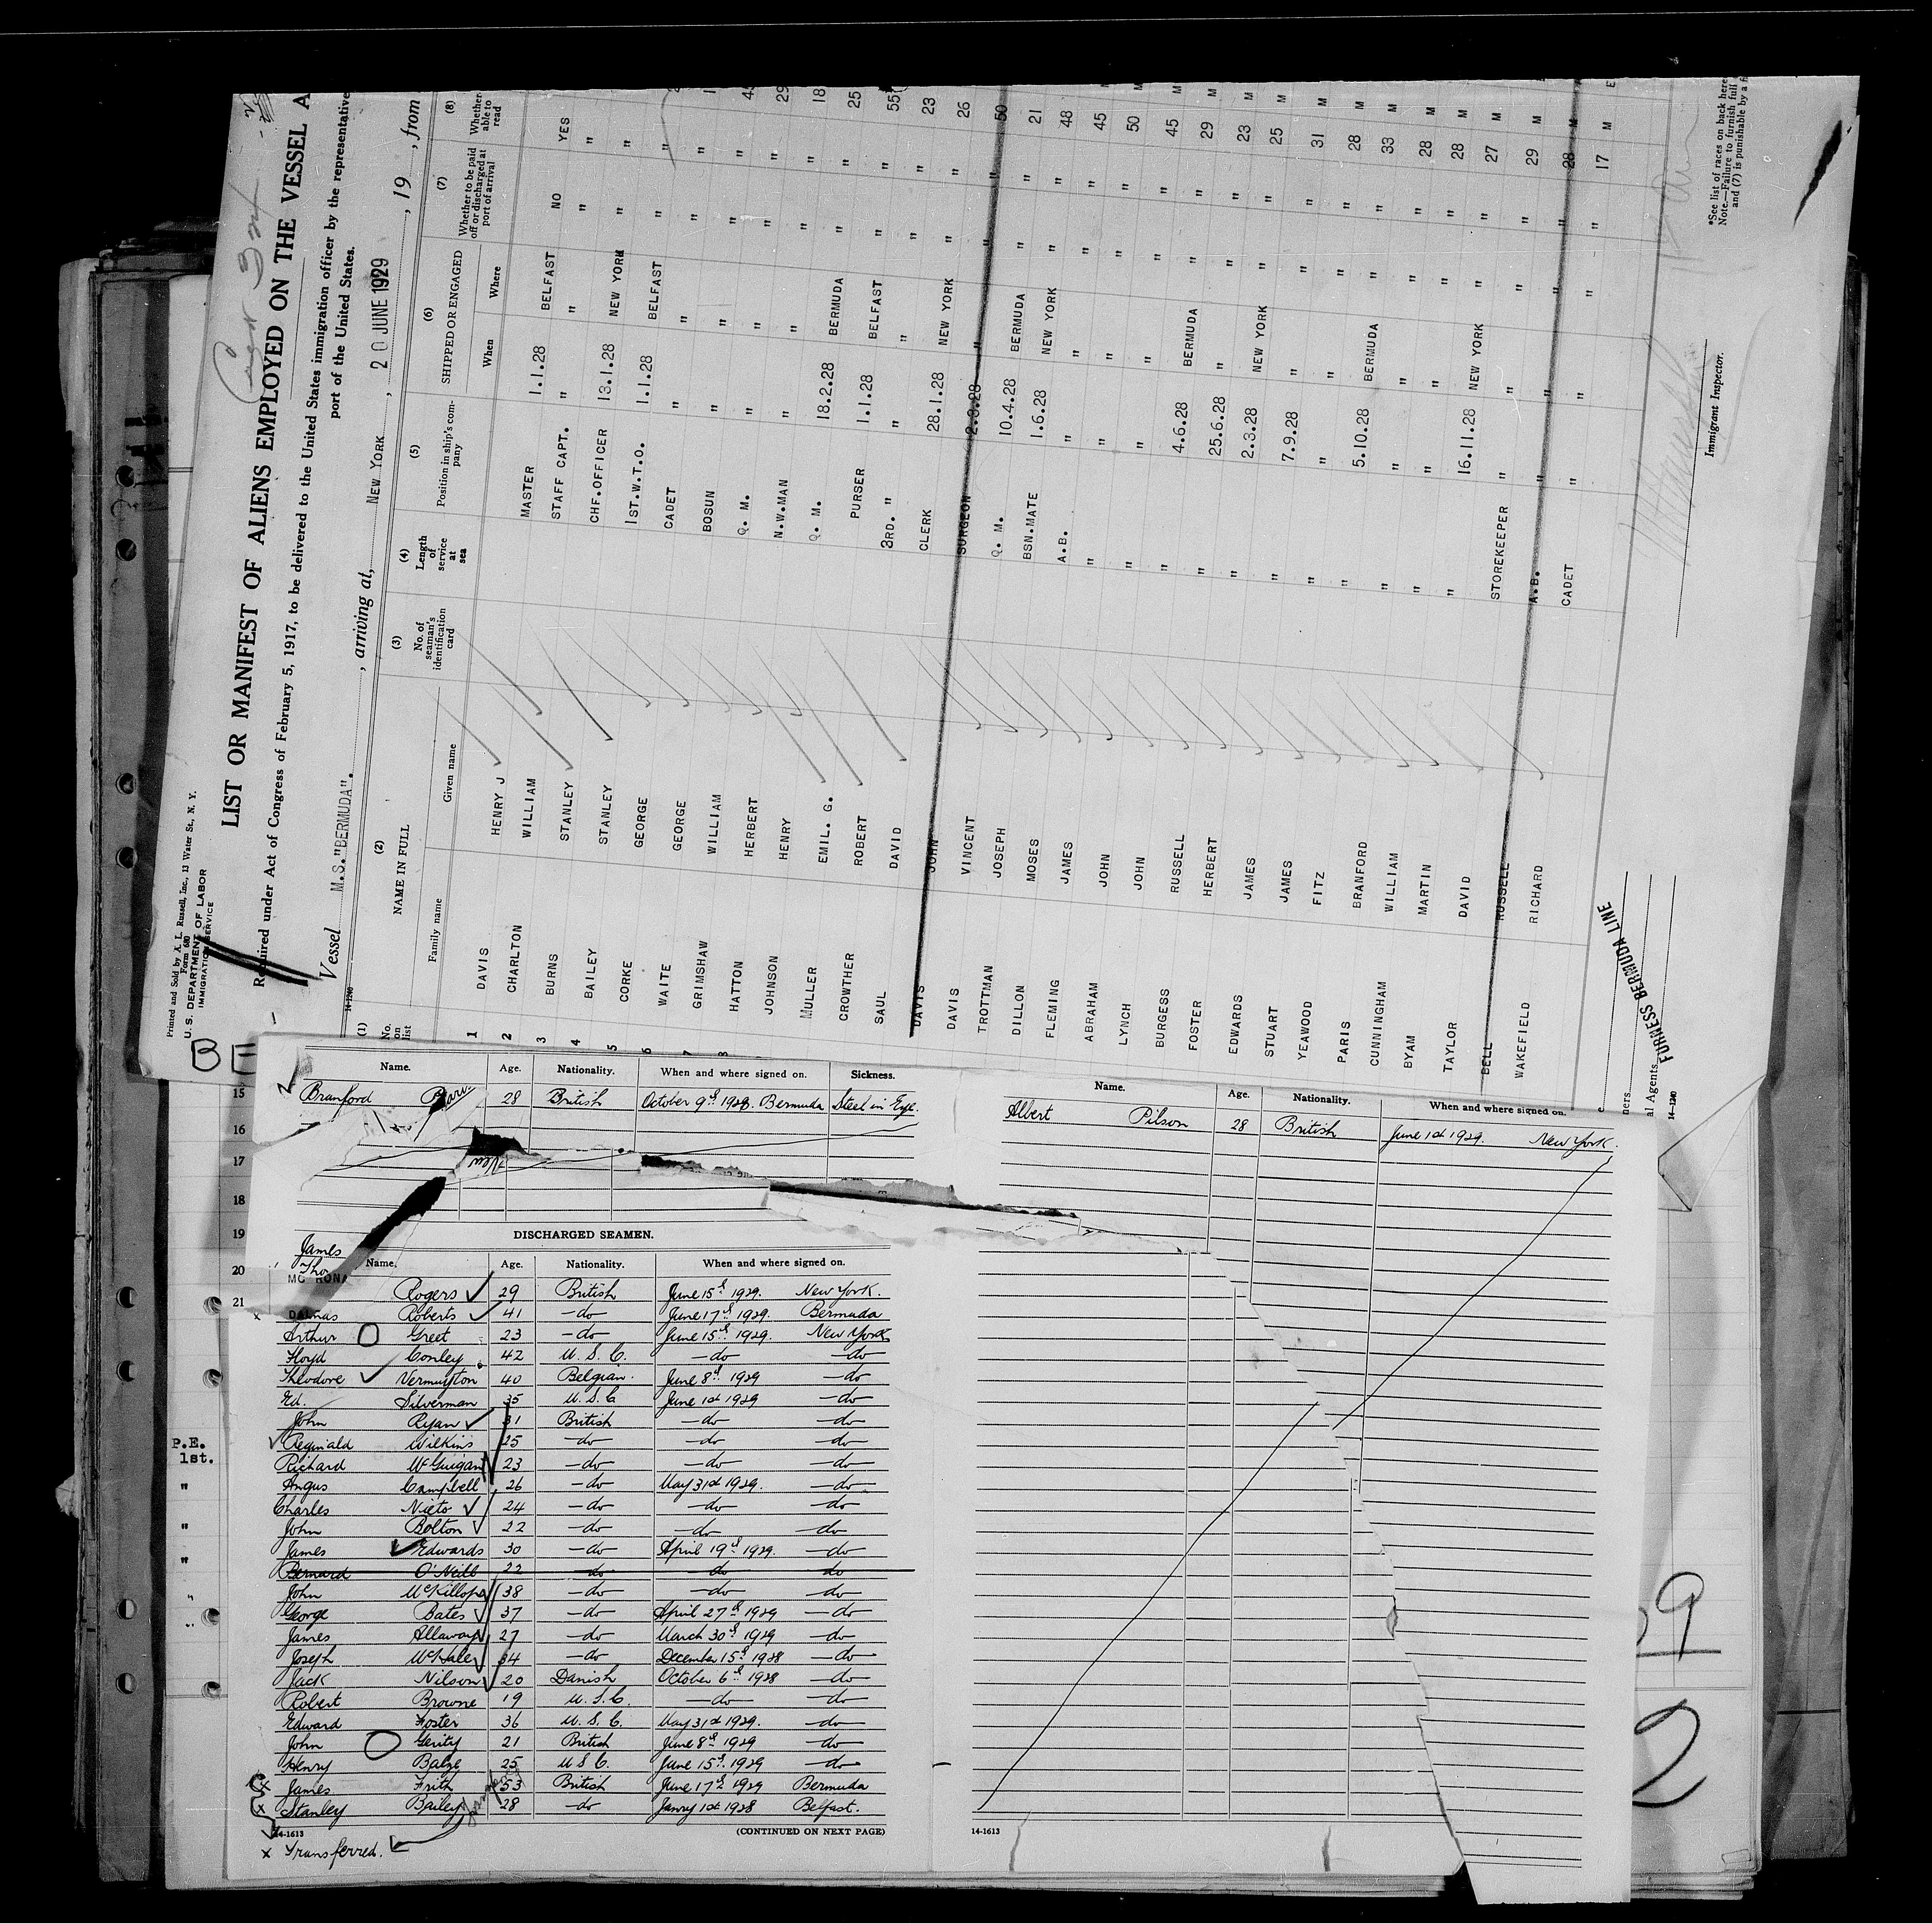 Printed and Sold by A. L. Russell, Inc., 13 Water St., N. Y.
Form 680
U. S. DEPARTMENT OF LABOR
IMMIGRATION SERVICE
LIST OR MANIFEST OF ALIENS EMPLOYED ON THE VESSEL A
Required under Act of Congress of February 5, 1917, to be delivered to the United States immigration officer by the representative
port of the United States.
Vessel M.S."BERMUDA". , arriving at, NEW YORK , 20 JUNE 1929 , 19 , from
14-1240
(1) (2) (3) (4) (5) (6) (7) (8)
No. on list NAME IN FULL No. of seaman's identification card Length of service at sea Position in ship's company SHIPPED OR ENGAGED Whether to be paid off or discharged at port of arrival Whether able to read
Family name Given name When Where
1 DAVIS HENRY J MASTER 1.1.28 BELFAST NO YES
2 CHARLTON WILLIAM STAFF CAPT. " " " "
3 BURNS STANLEY CHF.OFFICER 13.1.28 NEW YORK " "
4 BAILEY STANLEY 1ST.W.T.O. 1.1.28 BELFAST " "
5 CORKE GEORGE CADET " " " "
6 WAITE GEORGE BOSUN " " " "
7 GRIMSHAW WILLIAM Q. M. " " " "
8 HATTON HERBERT N.W.MAN " " " "
JOHNSON HENRY Q. M. 18.2.28 BERMUDA " " 18
MULLER EMIL. G. PURSER 1.1.28 BELFAST " " 25
CROWTHER ROBERT 3RD. " " " " " 55
SAUL DAVID CLERK 28.1.28 NEW YORK " " 23
DAVIS JOHN SURGEON 2.3.28 " " " 26
DAVIS VINCENT Q. M. 10.4.28 BERMUDA " " 50
TROTTMAN JOSEPH BSN.MATE 1.6.28 NEW YORK " " 21
DILLON MOSES A.B. " " " " 48 M
FLEMING JAMES " " " " " 45 M
ABRAHAM JOHN " " " " " 50 M
LYNCH JOHN " 4.6.28 BERMUDA " " 45 M
BURGESS RUSSELL " 25.6.28 " " " 29 M
FOSTER HERBERT " 2.3.28 NEW YORK " " 23 M
EDWARDS JAMES " 7.9.28 " " " 25 M
STUART JAMES " " " " " 31 M
YEAWOOD FITZ " 5.10.28 BERMUDA " " 28 M
PARIS BRANFORD " " " " " 33 M
CUNNINGHAM WILLIAM " " " " " 28 M
BYAM MARTIN " 16.11.28 NEW YORK " " 28 M
TAYLOR DAVID STOREKEEPER " " " " 27 M
BELL RUSSELL A.B. " " " " 29 M
WAKEFIELD RICHARD CADET " " " " 17 M
FURNESS BERMUDA LINE
al Agents
14-1240
Immigrant Inspector.
*See list of races on back here
Note.—Failure to furnish full
and (7) is punishable by a f
BE
15
16
17
18
19
20
21
P.E.
1st.
Name. Age. Nationality. When and where signed on. Sickness.
Branford Paris 28 British October 9th 1928. Bermuda Steel in Eye.
DISCHARGED SEAMEN.
James
Tho
Name. Age. Nationality. When and where signed on.
Rogers 29 British June 15th 1929. New York.
Roberts 41 -do- June 17th 1929. Bermuda
Arthur Greet 23 -do- June 15th 1929. New York
Floyd Conley 42 U. S. C. -do- -do-
Theodore Vermington 40 Belgian. June 8th 1929 -do-
Ed. Silverman 35 U. S. C June 1st 1929 -do-
John Ryan 31 British -do- -do-
Reginald Wilkins 25 -do- -do- -do-
Richard McGuigan 23 -do- -do- -do-
Angus Campbell 26 -do- May 31st 1929. -do-
Charles Nieto 24 -do- -do- -do-
John Bolton 22 -do- -do- -do-
James Edwards 30 -do- April 19th 1929. -do-
Bernard O'Neill 22 do do do
John McKillop 38 -do- -do- -do-
George Bates 37 -do- April 27th 1929 -do-
James Allaway 27 -do- March 30th 1929 -do-
Joseph McHale 34 -do- December 15th 1928 -do-
Jack Nilson 20 Danish October 6th 1928 -do-
Robert Browne 19 U. S. C. -do- -do-
Edward Foster 36 U. S. C. May 31st 1929. -do-
John Gerity 21 British June 8th 1929 -do-
Henry Balze 25 U S C. June 15th 1929 -do-
James Frith 53 British June 17th 1929 Bermuda
Stanley Bailey 28 -do- Janry 1st 1928 Belfast.
14-1613 (CONTINUED ON NEXT PAGE)
x Transferred.
Name. Age. Nationality. When and where signed on.
Albert Pilson 28 British June 1st 1929. New York.
14-1613
9
2